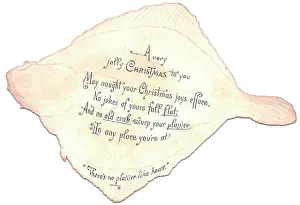 A very
jolly CHRISTMAS to you
May nought your Christmas joys efface,
No jokes of yours fall flat;
And no old crab usurp your plaice
In any place you're at!
"There's no plaice like home."